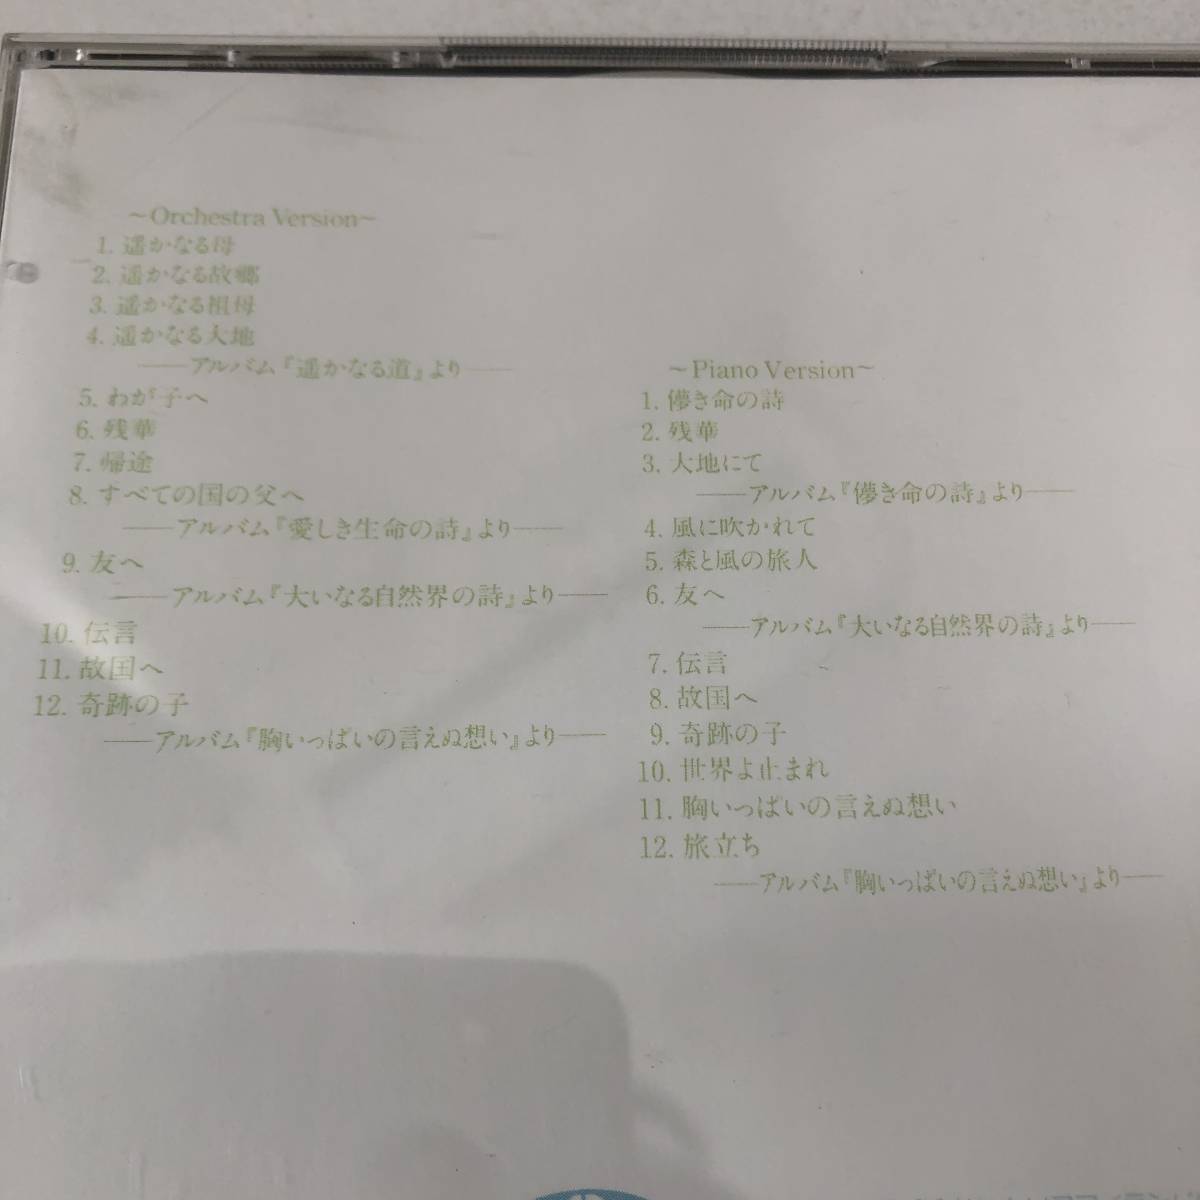 ~Orchestra Version~
1. 遥かなる母
2. 遥かなる故郷
3. 遥かなる祖母
4. 遥かなる大地
——アルバム『遥かなる道』より——
5. わが子へ
6. 残華
7. 帰途
8. すべての国の父へ
——アルバム『愛しき生命の詩』より——
9. 友へ
——アルバム『大いなる自然界の詩』より——
10. 伝言
11. 故国へ
12. 奇跡の子
——アルバム『胸いっぱいの言えぬ想い』より——
~Piano Version~
1. 儚き命の詩
2. 残華
3. 大地にて
——アルバム『儚き命の詩』より——
4. 風に吹かれて
5. 森と風の旅人
6. 友へ
——アルバム『大いなる自然界の詩』より——
7. 伝言
8. 故国へ
9. 奇跡の子
10. 世界よ止まれ
11. 胸いっぱいの言えぬ想い
12. 旅立ち
——アルバム『胸いっぱいの言えぬ想い』より——